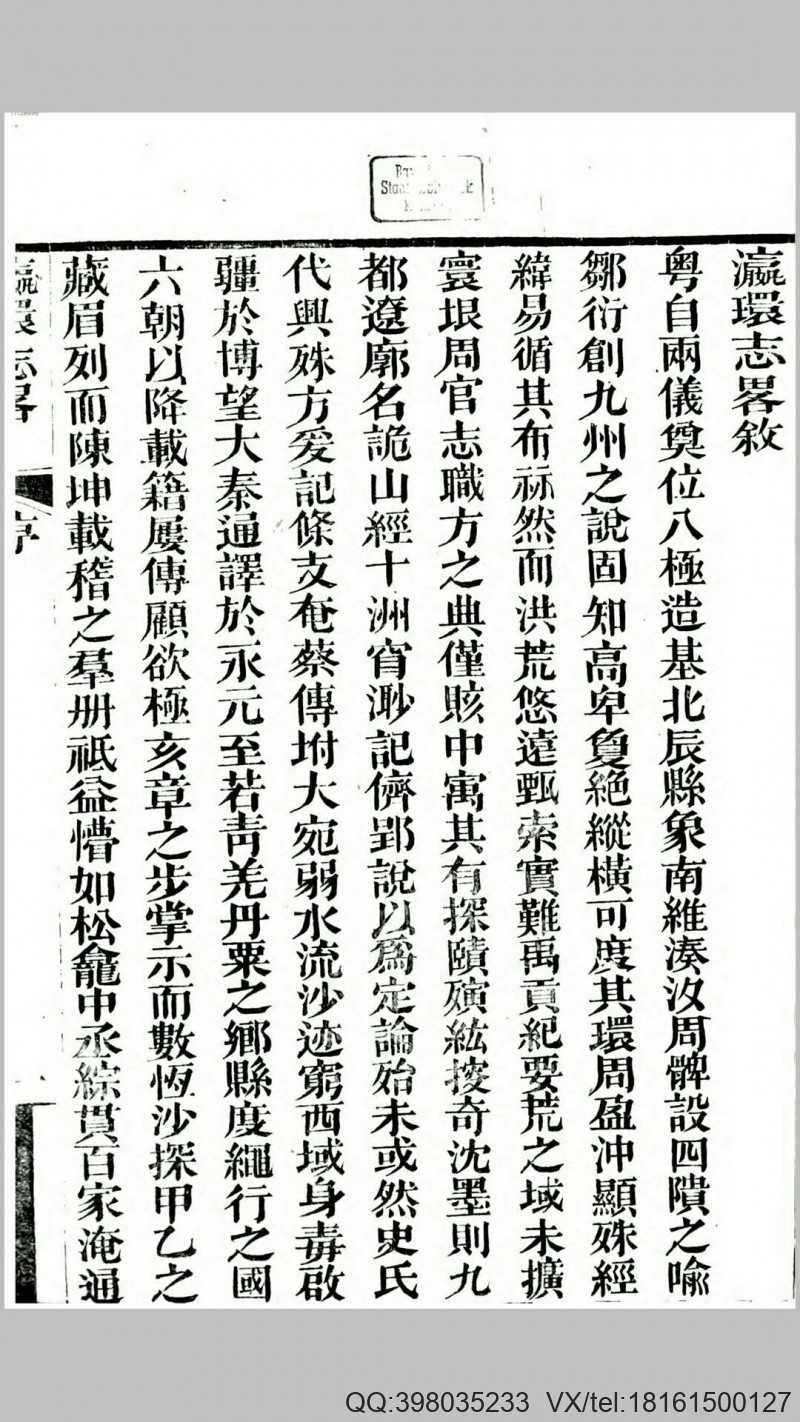 瀛環志畧敘
粵自兩儀奠位八極造基北辰縣象南維湊汝周髀設四隤之喻
鄒衍創九州之說固知高卑敻絕縱橫可度其環周盈沖顯殊經
緯易循其布祘然而洪荒悠遠甄索實難禹貢紀要荒之域未擴
寰垠周官志職方之典僅賅中寓其有探賾殯紘挍奇沈墨則九
都遼廓名詭山經十洲窅渺記儕郢說以爲定論殆未或然史氏
代興殊方爰記條支奄蔡傳坿大宛弱水流沙迹窮西域身毒啟
疆於博望大秦通譯於永元至若靑羌丹粟之鄉縣度繩行之國
六朝以降載籍屢傳顧欲極亥章之步掌示而數恆沙探甲乙之
藏眉列而陳坤載稽之羣冊祇益懵如松龕中丞綜貫百家淹通
瀛環志畧
序
Staats
QQ:398035233 VX/tel:18161500127